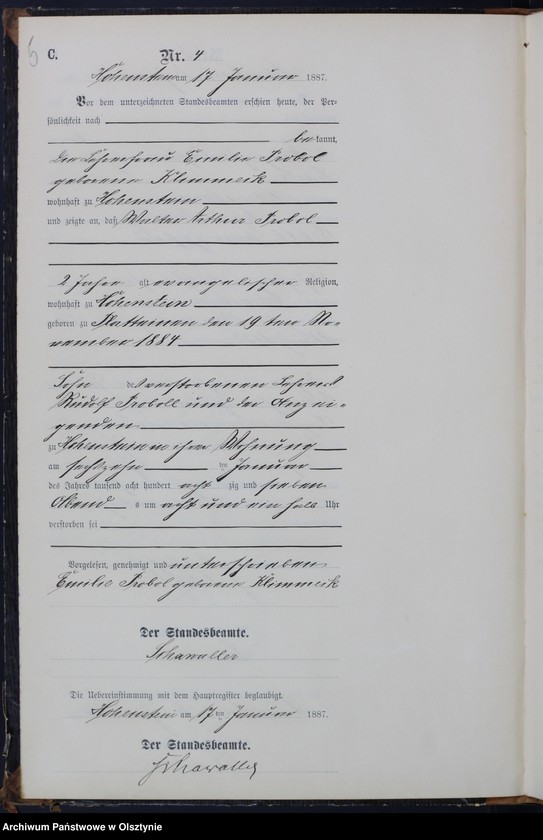 5
C.
Nr. 4
Hohenstein am 17 Januar 1887.
Vor dem unterzeichneten Standesbeamten erschien heute, der Per-
sönlichkeit nach
be kannt,
die Lehrerfrau Emilie Probol
geborene Klimmeck
wohnhaft zu Hohenstein
und zeigte an, daß Walter Arthur Probol
2 Jahre alt evangelischer Religion,
wohnhaft zu Hohenstein
geboren zu Platteinen den 19 ten No-
vember 1884
Sohn des verstorbenen Lehrers
Rudolf Proboll und der Anzei-
genden
zu Hohenstein in ihrer Wohnung
am sechzehn ten Januar
des Jahres tausend acht hundert acht zig und sieben
Abend s um acht und ein halb Uhr
verstorben sei
Vorgelesen, genehmigt und unterschrieben
Emilie Probol geborene Klimmeck
Der Standesbeamte.
Schawaller
Die Uebereinstimmung mit dem Hauptregister beglaubigt.
Hohenstein am 17 ten Januar 1887.
Der Standesbeamte.
Schawaller
Archiwum Państwowe w Olsztynie